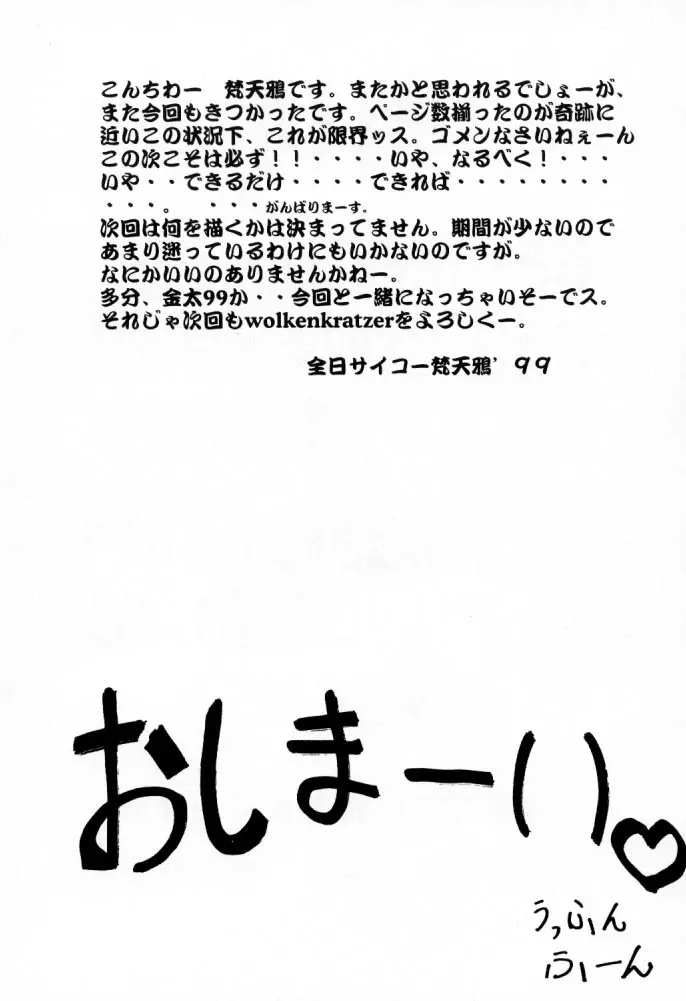 こんちわー　梵天鴉です。またかと思われるでしょーが、
また今回もきつかったです。ページ数揃ったのが奇跡に
近いこの状況下、これが限界ッス。ゴメンなさいねぇーん
この次こそは必ず！！・・・・いや、なるべく！・・・
いや・・できるだけ・・・・できれば・・・・・・・・
・・・。　・・・がんばりまーす。
次回は何を描くかは決まってません。期間が少ないので
あまり迷っているわけにもいかないのですが。
なにかいいのありませんかねー。
多分、金太99か・・今回と一緒になっちゃいそーでス。
それじゃ次回もwolkenkratzerをよろしくー。
全日サイコー梵天鴉’９９
おしまーい♡
うっふん
ふぃーん